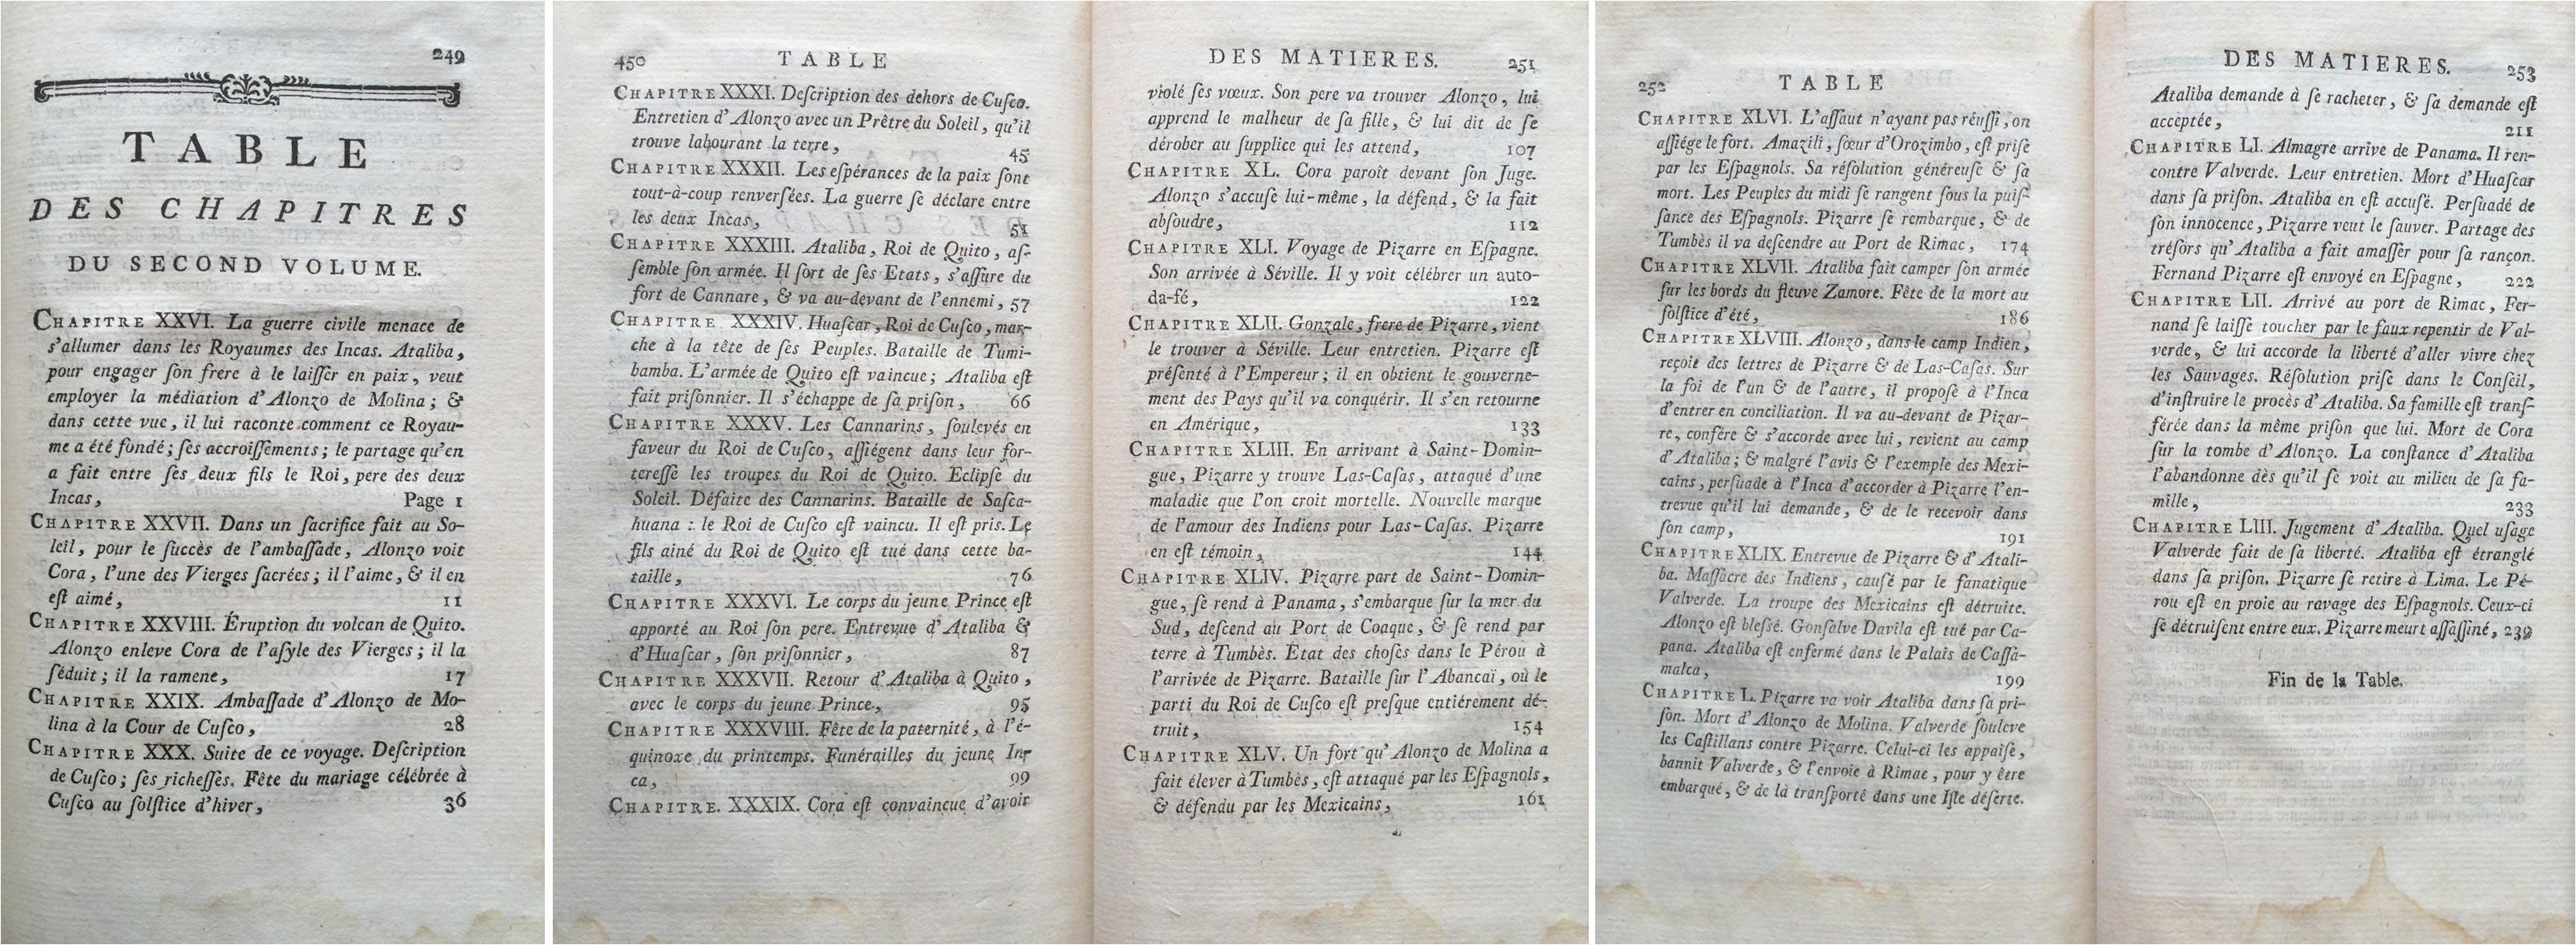 249
TABLE
DES CHAPITRES
DU SECOND VOLUME.
CHAPITRE XXVI. La guerre civile menace de
s'allumer dans les Royaumes des Incas. Ataliba,
pour engager ſon frere à le laiſſer en paix, veut
employer la médiation d'Alonzo de Molina; &
dans cette vue, il lui raconte comment ce Royau-
me a été fondé; ſes accroiſſements; le partage qu'en
a fait entre ſes deux fils le Roi, pere des deux
Incas, Page 1
CHAPITRE XXVII. Dans un ſacrifice fait au So-
leil, pour le ſuccès de l'ambaſſade, Alonzo voit
Cora, l'une des Vierges ſacrées; il l'aime, & il en
eſt aimé, 11
CHAPITRE XXVIII. Éruption du volcan de Quito.
Alonzo enleve Cora de l'aſyle des Vierges; il la
ſéduit; il la ramene, 17
CHAPITRE XXIX. Ambaſſade d'Alonzo de Mo-
lina à la Cour de Cuſco, 28
CHAPITRE XXX. Suite de ce voyage. Deſcription
de Cuſco; ſes richeſſes. Fête du mariage célébrée à
Cuſco au ſolſtice d'hiver, 36
450 TABLE
CHAPITRE XXXI. Deſcription des dehors de Cuſco.
Entretien d'Alonzo avec un Prêtre du Soleil, qu'il
trouve labourant la terre, 45
CHAPITRE XXXII. Les eſpérances de la paix ſont
tout-à-coup renverſées. La guerre ſe déclare entre
les deux Incas, 51
CHAPITRE XXXIII. Ataliba, Roi de Quito, aſ-
ſemble ſon armée. Il ſort de ſes Etats, s'aſſure du
fort de Cannare, & va au-devant de l'ennemi, 57
CHAPITRE XXXIV. Huaſcar, Roi de Cuſco, mar-
che à la tête de ſes Peuples. Bataille de Tumi-
bamba. L'armée de Quito eſt vaincue; Ataliba eſt
fait priſonnier. Il s'échappe de ſa priſon, 66
CHAPITRE XXXV. Les Cannarins, ſoulevés en
faveur du Roi de Cuſco, aſſiégent dans leur for-
tereſſe les troupes du Roi de Quito. Eclipſe du
Soleil. Défaite des Cannarins. Bataille de Saſca-
huana : le Roi de Cuſco eſt vaincu. Il eſt pris. Le
fils ainé du Roi de Quito eſt tué dans cette ba-
taille, 76
CHAPITRE XXXVI. Le corps du jeune Prince eſt
apporté au Roi ſon pere. Entrevue d'Ataliba &
d'Huaſcar, ſon priſonnier, 87
CHAPITRE XXXVII. Retour d'Ataliba à Quito,
avec le corps du jeune Prince, 95
CHAPITRE XXXVIII. Fête de la paternité, à l'é-
quinoxe du printemps. Funérailles du jeune In-
ca, 99
CHAPITRE. XXXIX. Cora eſt convaincue d'avoir
DES MATIERES. 251
violé ſes vœux. Son pere va trouver Alonzo, lui
apprend le malheur de ſa fille, & lui dit de ſe
dérober au ſupplice qui les attend, 107
CHAPITRE XL. Cora paroît devant ſon Juge.
Alonzo s'accuſe lui-même, la défend, & la fait
abſoudre, 112
CHAPITRE XLI. Voyage de Pizarre en Eſpagne.
Son arrivée à Séville. Il y voit célébrer un auto-
da-fé, 122
CHAPITRE XLII. Gonzale, frere de Pizarre, vient
le trouver à Séville. Leur entretien. Pizarre eſt
préſenté à l'Empereur; il en obtient le gouverne-
ment des Pays qu'il va conquérir. Il s'en retourne
en Amérique, 133
CHAPITRE XLIII. En arrivant à Saint-Domin-
gue, Pizarre y trouve Las-Caſas, attaqué d'une
maladie que l'on croit mortelle. Nouvelle marque
de l'amour des Indiens pour Las-Caſas. Pizarre
en eſt témoin, 144
CHAPITRE XLIV. Pizarre part de Saint-Domin-
gue, ſe rend à Panama, s'embarque ſur la mer du
Sud, deſcend au Port de Coaque, & ſe rend par
terre à Tumbès. Etat des choſes dans le Pérou à
l'arrivée de Pizarre. Bataille ſur l'Abancaï, où le
parti du Roi de Cuſco eſt preſque entiérement dé-
truit, 154
CHAPITRE XLV. Un fort qu'Alonzo de Molina a
fait élever à Tumbès, eſt attaqué par les Eſpagnols,
& défendu par les Mexicains, 161
252 TABLE
CHAPITRE XLVI. L'aſſaut n'ayant pas réuſſi, on
aſſiége le fort. Amazili, ſœur d'Orozimbo, eſt priſe
par les Eſpagnols. Sa réſolution généreuſe & ſa
mort. Les Peuples du midi ſe rangent ſous la puiſ-
ſance des Eſpagnols. Pizarre ſe rembarque, & de
Tumbès il va deſcendre au Port de Rimac, 174
CHAPITRE XLVII. Ataliba fait camper ſon armée
ſur les bords du fleuve Zamore. Fête de la mort au
ſolſtice d'été, 186
CHAPITRE XLVIII. Alonzo, dans le camp Indien,
reçoit des lettres de Pizarre & de Las-Caſas. Sur
la foi de l'un & de l'autre, il propoſe à l'Inca
d'entrer en conciliation. Il va au-devant de Pizar-
re, confère & s'accorde avec lui, revient au camp
d'Ataliba; & malgré l'avis & l'exemple des Mexi-
cains, perſuade à l'Inca d'accorder à Pizarre l'en-
trevue qu'il lui demande, & de le recevoir dans
ſon camp, 191
CHAPITRE XLIX. Entrevue de Pizarre & d'Atali-
ba. Maſſacre des Indiens, cauſé par le fanatique
Valverde. La troupe des Mexicains eſt détruite.
Alonzo eſt bleſſé. Gonſalve Davila eſt tué par Ca-
pana. Ataliba eſt enfermé dans le Palais de Caſſa-
malca, 199
CHAPITRE L. Pizarre va voir Ataliba dans ſa pri-
ſon. Mort d'Alonzo de Molina. Valverde ſouleve
les Caſtillans contre Pizarre. Celui-ci les appaiſe,
bannit Valverde, & l'envoie à Rimac, pour y être
embarqué, & de là tranſporté dans une Iſle déſerte.
DES MATIERES. 253
Ataliba demande à ſe racheter, & ſa demande eſt
acceptée, 211
CHAPITRE LI. Almagre arrive de Panama. Il ren-
contre Valverde. Leur entretien. Mort d'Huaſcar
dans ſa priſon. Ataliba en eſt accuſé. Perſuadé de
ſon innocence, Pizarre veut le ſauver. Partage des
tréſors qu'Ataliba a fait amaſſer pour ſa rançon.
Fernand Pizarre eſt envoyé en Eſpagne, 222
CHAPITRE LII. Arrivé au port de Rimac, Fer-
nand ſe laiſſe toucher par le faux repentir de Val-
verde, & lui accorde la liberté d'aller vivre chez
les Sauvages. Réſolution priſe dans le Conſeil,
d'inſtruire le procès d'Ataliba. Sa famille eſt tranſ-
férée dans la même priſon que lui. Mort de Cora
ſur la tombe d'Alonzo. La conſtance d'Ataliba
l'abandonne dès qu'il ſe voit au milieu de ſa fa-
mille, 233
CHAPITRE LIII. Jugement d'Ataliba. Quel uſage
Valverde fait de ſa liberté. Ataliba eſt étranglé
dans ſa priſon. Pizarre ſe retire à Lima. Le Pé-
rou eſt en proie au ravage des Eſpagnols. Ceux-ci
ſe détruiſent entre eux. Pizarre meurt aſſaſſiné, 239
Fin de la Table.